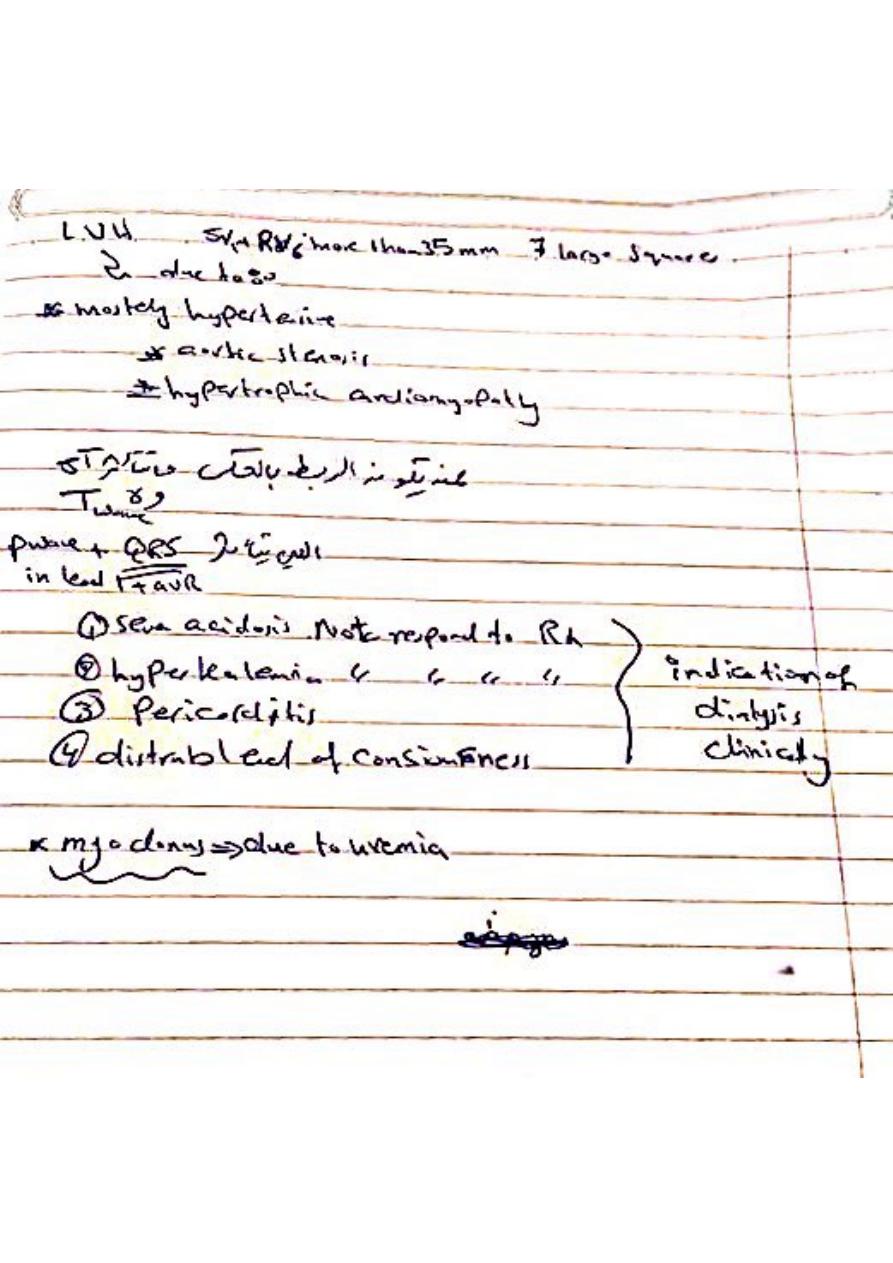 L.V.H SV1+RV6 more than 35 mm 7 large square.
due to
* mostely hypertensive
* aortic stenosis
* hypertrophic cardiomyopathy
عند يكون الربط بالعكس
T wave ولا
P wave + QRS
in lead 1 + aVR
① sever acidosis Note respond to Rx
② hyperkalemia " " " "
③ Pericarditis
④ distrub level of consiousness
indication of
dialysis
clinicaly
* myoclonus ⇒ due to uremia